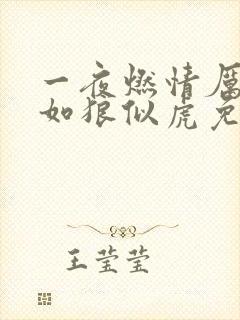 一夜燃情厲
如狼似虎免
王莹莹